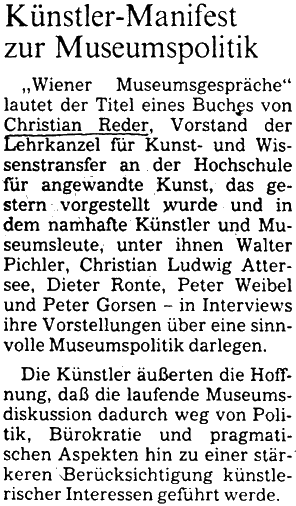 Künstler-Manifest
zur Museumspolitik
„Wiener Museumsgespräche“
lautet der Titel eines Buches von
Christian Reder, Vorstand der
Lehrkanzel für Kunst- und Wis-
senstransfer an der Hochschule
für angewandte Kunst, das ge-
stern vorgestellt wurde und in
dem namhafte Künstler und Mu-
seumsleute, unter ihnen Walter
Pichler, Christian Ludwig Atter-
see, Dieter Ronte, Peter Weibel
und Peter Gorsen – in Interviews
ihre Vorstellungen über eine sinn-
volle Museumspolitik darlegen.
Die Künstler äußerten die Hoff-
nung, daß die laufende Museums-
diskussion dadurch weg von Poli-
tik, Bürokratie und pragmati-
schen Aspekten hin zu einer stär-
keren Berücksichtigung künstle-
rischer Interessen geführt werde.